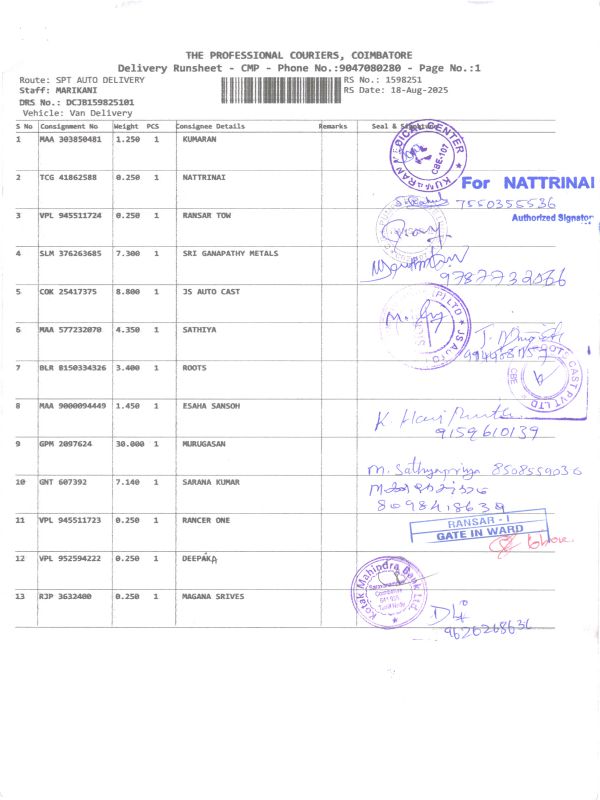 THE PROFESSIONAL COURIERS, COIMBATORE
Delivery Runsheet - CMP - Phone No.:9047080280 - Page No.:1
Route: SPT AUTO DELIVERY RS No.: 1598251
Staff: MARIKANI RS Date: 18-Aug-2025
DRS No.: DCJB159825101
Vehicle: Van Delivery
S No Consignment No Weight PCS Consignee Details Remarks Seal & Signature
1 MAA 303850481 1.250 1 KUMARAN
KUMARAN MEDICAL CENTER
CBE-107
2 TCG 41862588 0.250 1 NATTRINAI
For NATTRINAI
7550355536
Authorized Signator
3 VPL 945511724 0.250 1 RANSAR TOW
4 SLM 376263685 7.300 1 SRI GANAPATHY METALS
9787732066
5 COK 25417375 8.800 1 3S AUTO CAST
6 MAA 577232070 4.350 1 SATHIYA
7 BLR B150334326 3.400 1 ROOTS
ROOTS CAST PVT LTD
CBE
8 MAA 9000094449 1.450 1 ESAHA SANSOH
9159610139
9 GPM 2097624 30.000 1 MURUGASAN
M. Sathyapriya 8508559036
10 GNT 607392 7.140 1 SARANA KUMAR
8098418639
11 VPL 945511723 0.250 1 RANCER ONE
RANSAR - I
GATE IN WARD
12 VPL 952594222 0.250 1 DEEPAKA
Kotak Mahindra Bank Ltd.
Coimbatore
Tamil Nadu
13 RJP 3632400 0.250 1 MAGANA SRIVES
9626268636